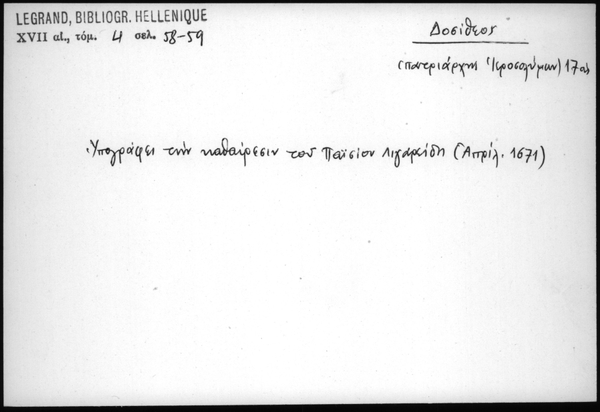 LEGRAND, BIBLIOGR. HELLENIQUE
XVII αἰ., τόμ. 4 σελ. 58-59
Δοσίθεος
(πατριάρχης Ἱεροσολύμων) 17 αἰ.
Ὑπογράφει τὴν καθαίρεσιν τοῦ Παϊσίου Λιγαρείδη (Ἀπρίλ. 1671)